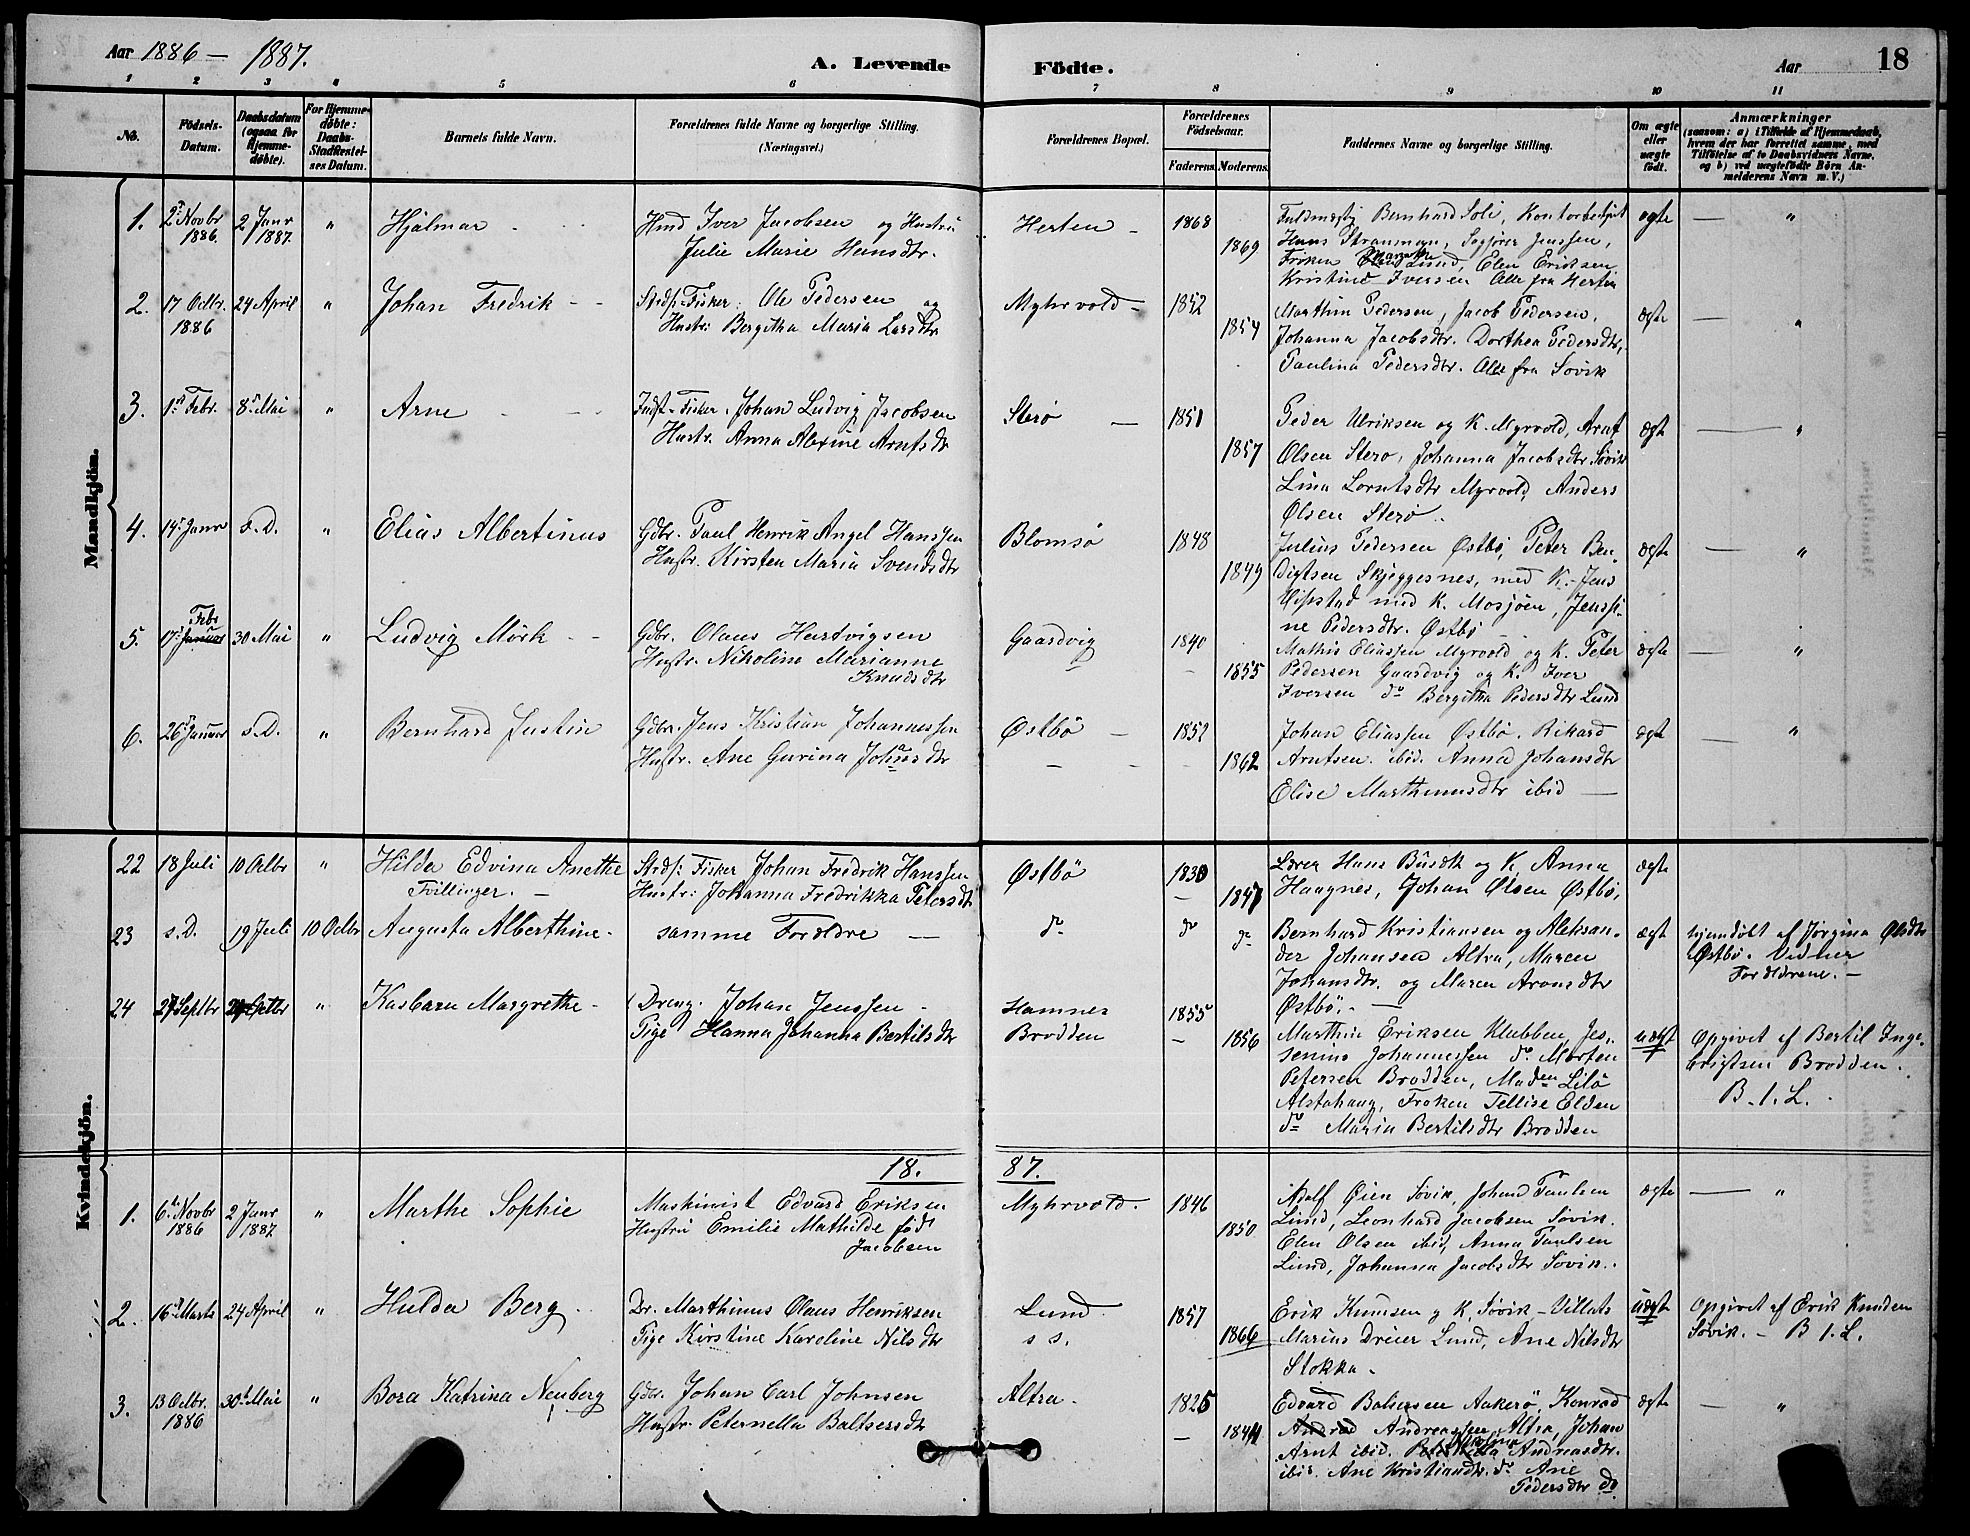 Aar 1886 – 1887.
A. Levende Födte.
Aar 18
1 2 3 4 5 6 7 8 9 10 11
No.
Födsels-Datum.
Daabsdatum (ogsaa for Hjemme-döbte).
For Hjemme-döbte: Daabs-Stadfæstel-ses Datum.
Barnets fulde Navn.
Forældrenes fulde Navne og borgerlige Stilling. (Næringsvei.)
Forældrenes Bopæl.
Forældrenes Födselsaar.
Faderens. Moderens.
Faddernes Navne og borgerlige Stilling.
Om ægte eller uægte födt.
Anmærkninger
(saasom: a) i Tilfælde af Hjemmedaab, hvem der har forrettet samme, med Tilföielse af to Daabsvidners Navne, og b) ved uægtefödte Börn An-melderens Navn m. V.)
Mandkjön.
1. 2 Novbr 1886. 2 Janr 1887. " Hjalmar
Hmd Iver Jacobsen og Hustru
Julie Marie Hansdtr.
Herten – 1868 1869
Fuldmægtig Bernhard Soli, Kontorbetjent
Hans Straumman, Sagförer Jenssen,
Fröken Lund, Elen Eriksen
Kristine Iversen Alle fra Herten
ægte — "
2. 17 Octbr. 1886 24 April " Johan Fredrik
Strds. Fisker. Ole Pedersen og
Hustr. Bergitha Maria Larsdtr
Myhrvold – 1852 1854
Marthin Pedersen, Jacob Pedersen,
Johanna Jacobsdtr. Dorthea Pedersdtr,
Paulina Pedersdtr. Alle fra Søvik
ægte — "
3. 1 Febr. 8 Mai " Arne
Indst. Fisker. Johan Ludvig Jacobsen
Hustr. Anna Alexine Arntsdtr
Sterö — 1851 1857
Peder Ulriksen og K. Myrvold, Arnt
Olsen Sterø, Johanna Jacobsdtr Søvik
Lina Lorntsdtr Myrvold, Anders
Olsen Sterø.
ægte — "
4. 14 Janr s. D. " Elias Albertinus
Gdbr. Paul Henrik Angel Hanssen
Hustr. Kirsten Maria Svendsdtr
Blomsö 1848 1849
Julius Pedersen Østbö, Peter Ben-
digtsen Skjeggesnes, med K. Jens
med K. Mosjöen, Jenssi-
ne Pedersdtr. Østbö
ægte — "
5. 17 Januar Febr 30 Mai " Ludvig Mörk
Gdbr. Olaus Hartvigsen
Hustr. Nikoline Marianne
Knudsdtr
Gaardvig 1840 1855
Mathis Eliassen Myrvold og K. Peter
Pedersen Gaardvig og K. Iver
Iversen do Bergitha Pedersdtr Lund
ægte — "
6. 26 Januar s. D. " Bernhard Justin
Gdbr. Jens Kristian Johannessen
Hustr. Ane Gurina Johnsdtr
Østbö — 1852 1862
Johan Eliassen Østbö. Rikard
Arntsen. ibid. Anna Johansdtr
Elise Marthinusdtr ibid —
ægte — "
Kvindekjön.
22 18 Juli 10 Octbr " Hilda Edvina Anethe
Tvillinger. —
Strds. Fisker Johan Fredrik Hanssen
Hustr: Johanna Fredrikka Petersdtr
Østbö 1830 1847
Lærer Hans Busch og K. Anna
Haagnes, Johan Olsen Østbö,
ægte
23 s. D. 19 Juli 10 Octbr Augusta Alberthine
samme Foreldre —
do do do
Bernhard Kristiansen og Aleksan-
der Johansen Altra, Maren
Johansdtr. og Maren Aronsdtr
Østbö.
ægte
hjemdøbt af Jørgina Olsdtr
Østbö. Vidner
Forældrene. –
24 27 Septbr " Kasbara Margrethe
Dreng. Johan Jenssen
Pige Hanna Johanna Bertilsdtr
Hamnes
Brodden
1855 1856
Marthin Eriksen Klubben, Jes-
senius Johannessen do Morten
Petersen Brodden, Maden Lilö
Alstahaug, Fröken Tellise Elden
do Maria Bertilsdtr Brodden
uægt
Opgivet af Bertil Inge-
brigtsen Brodden.
B. 1. L.
18. 87.
1. 6 Novbr 1886 2 Janr 1887 " Marthe Sophie
Maskinist Edvard Eriksen
Hustru Emilie Mathilde född
Jacobsen
Myhrvold. 1846 1850
Adolf Øien Søvik, Johan Paulsen
Lund, Leonhard Jacobsen Søvik.
Elen Olsen ibid, Anna Paulsen
Lund, Johanna Jacobsdtr Søvik.
ægte — "
2. 16 Marts 24 April " Hulda Berg
Dr. Marthinus Olaus Henriksen
Pige Kirstine Karoline Nilsdtr
Lund
s s.
1857 1866
Erik Knudsen og K. Søvik –
Marius Dreier Lund, Ane Nilsdtr
Stokka –
uægt
Opgivet af Erik Knudsen
Søvik. – B 1. L.
3. 13 Octbr. 1886 30 Mai " Bora Katrina Neuberg
Gdbr. Johan Carl Johnsen
Hustr. Peternella Baltsersdtr
Altra. 1825 1844
Edvard Baltsersen Aakerö, Konrad
Andreassen Altra, Johan
Arnt ibid. Andreasdtr.
ibid. Ane Kristiandtr. do Ane
Pedersdtr do
ægte — "